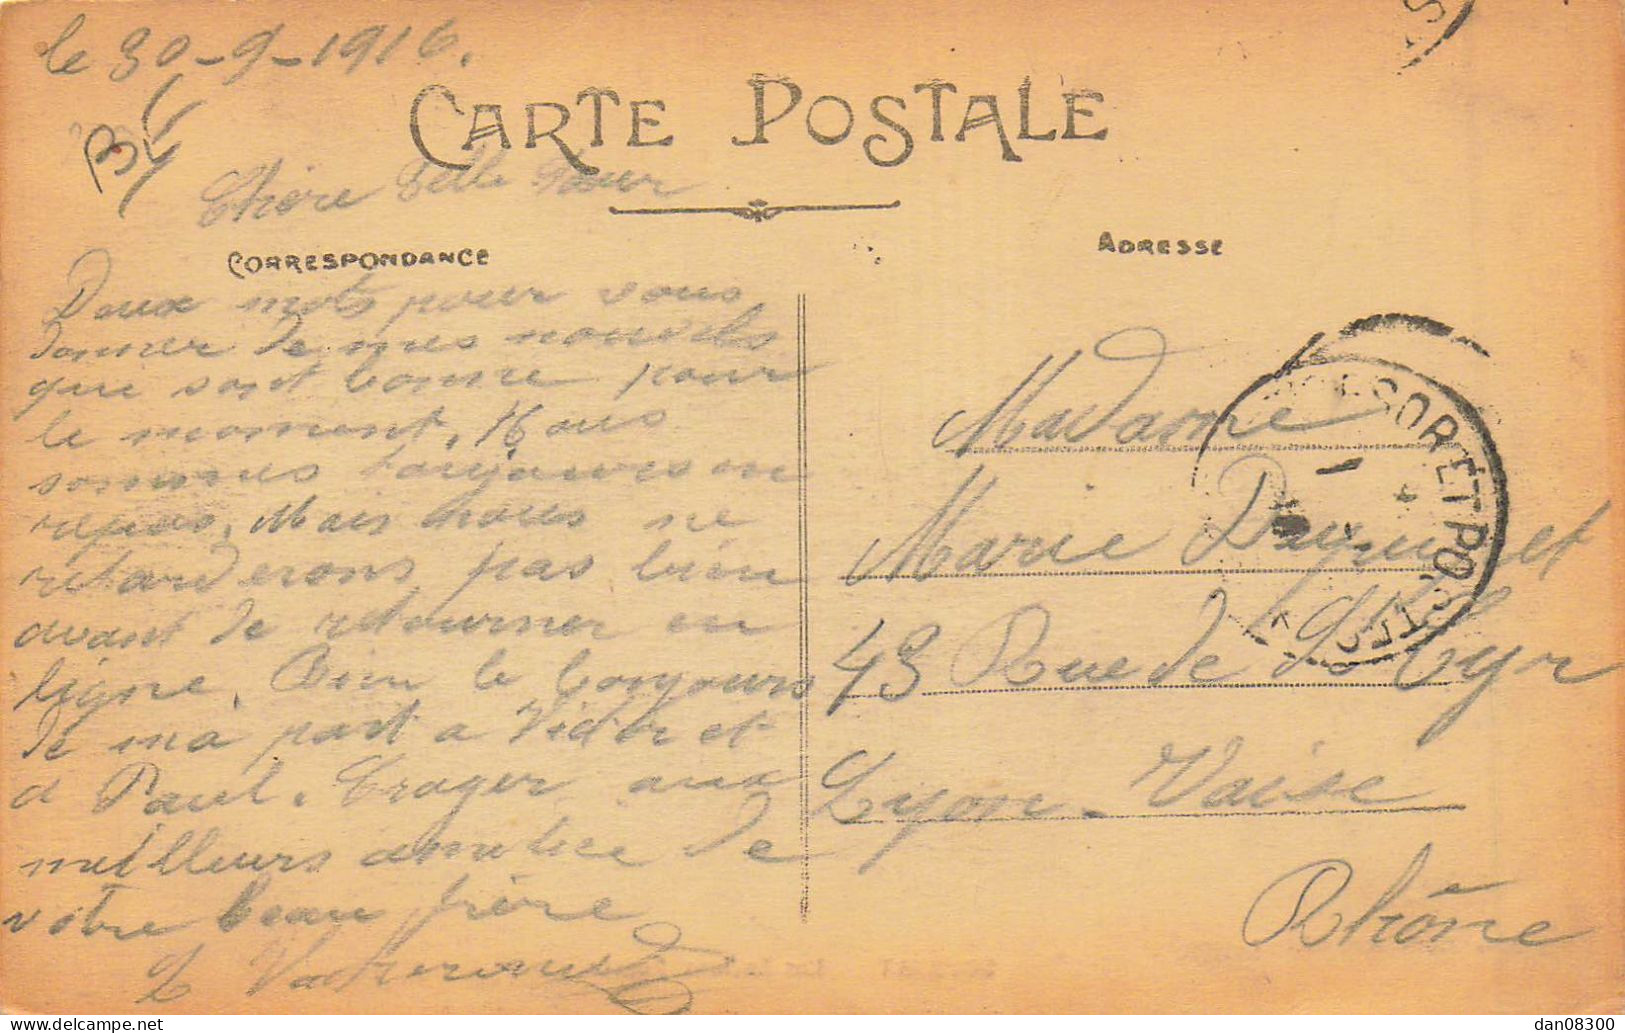 le 30-9-1916.
CARTE POSTALE
Chère Belle Soeur
CORRESPONDANCE
ADRESSE
Deux mots pour vous
donner de mes nouvelles
que sont bonne pour
le moment. Nous
sommes toujours en
repos. Mais nous ne
retarderons pas bien
avant de retourner en
ligne. Bien le bonjours
de ma part a Victor et
a Paul. Croyer aux
meilleurs amitie de
votre beau frère
TRESOR ET POSTES
Madame
Marie
43 Rue de St Cyr
Lyon-Vaise
Rhône
dan08300